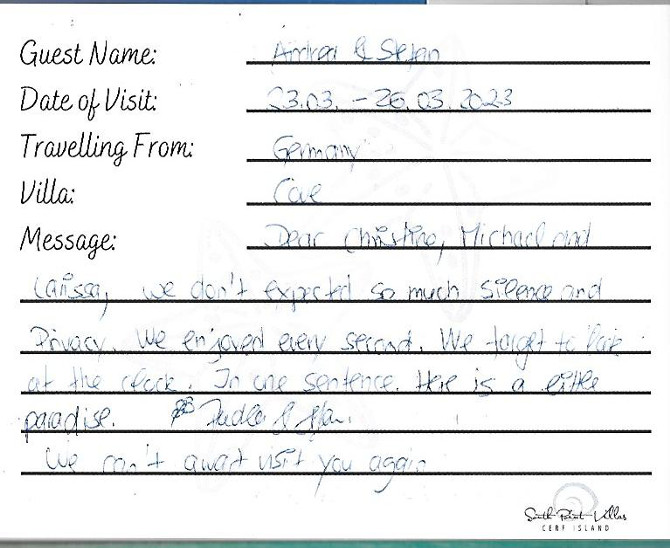 Guest Name: Andrea & Stefan
Date of Visit: 23.03. - 26.03.2023
Travelling From: Germany
Villa: Cove
Message: Dear Christine, Michael and
Larissa, we don't expected so much silence and
Privacy. We enjoyed every second. We forget to look
at the clock. In one sentence. Here is a little
paradise.
We can't await visit you again
South Point Villas
CERF ISLAND